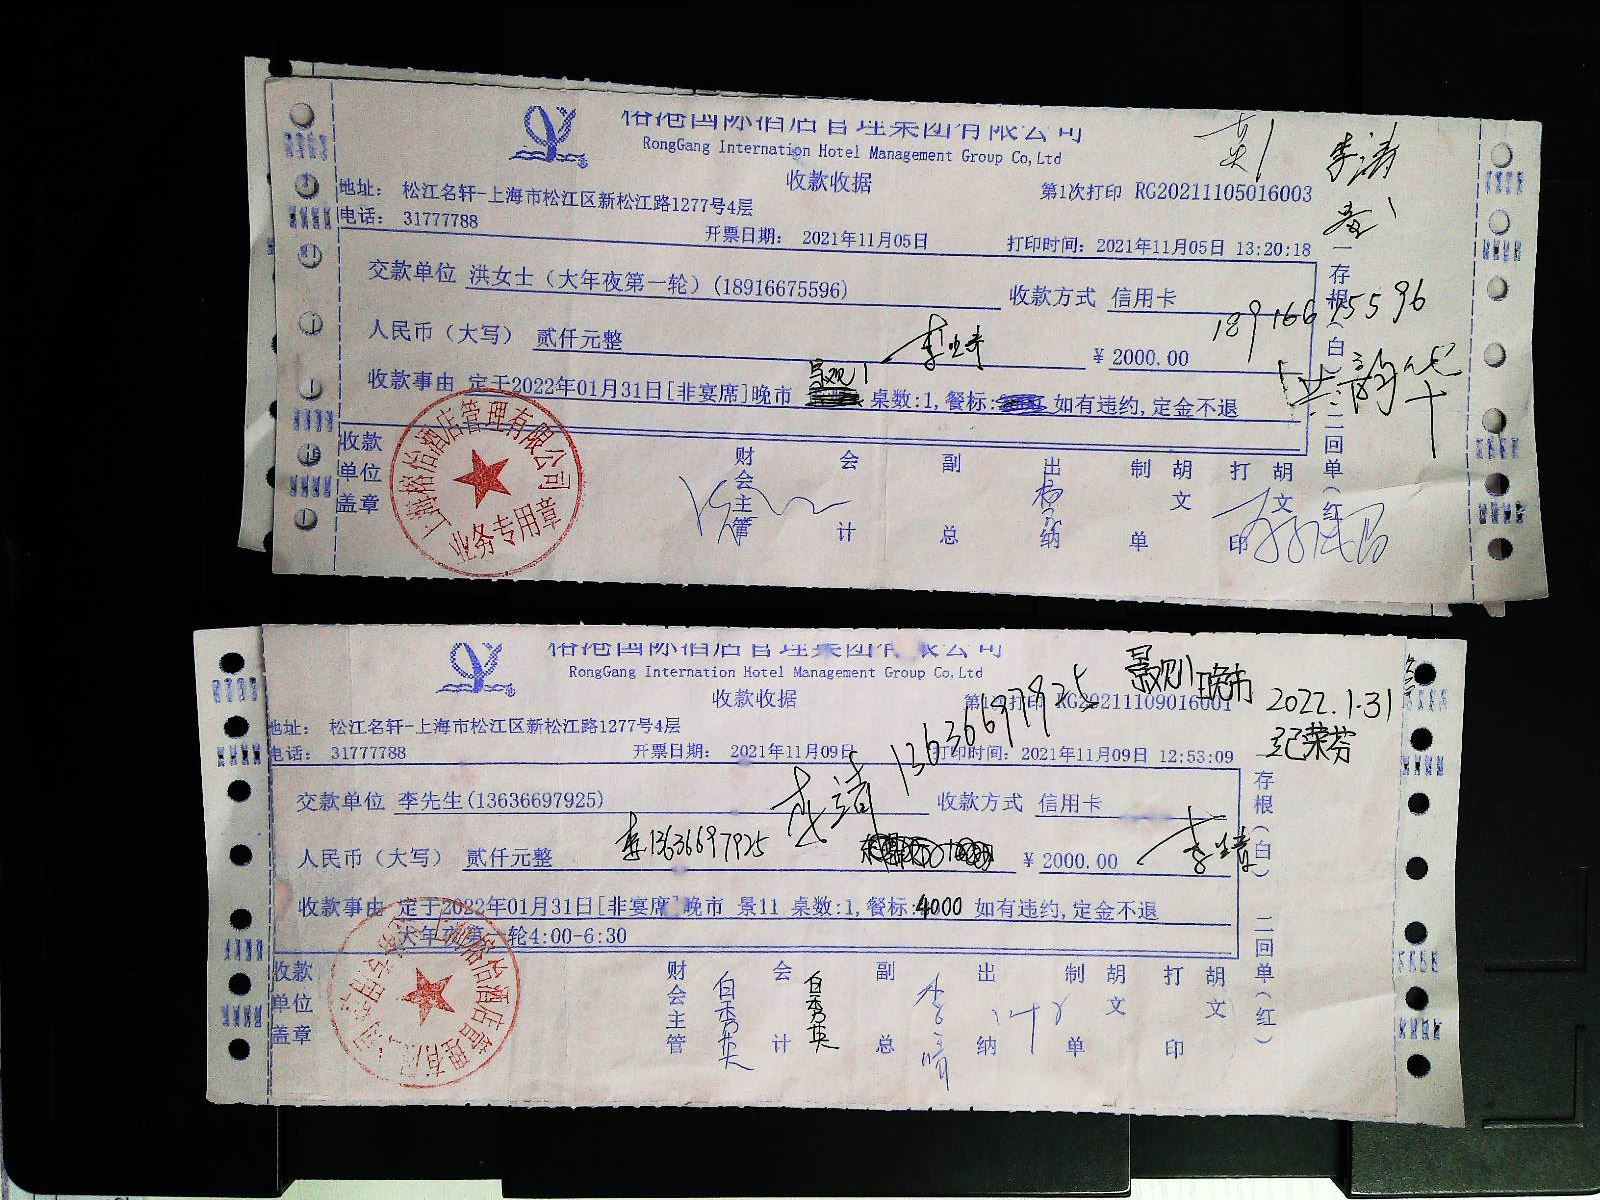 榕港国际酒店管理集团有限公司
RongGang Internation Hotel Management Group Co,Ltd
收款收据
第1次打印 RG20211105016003
李涛
地址: 松江名轩-上海市松江区新松江路1277号4层
电话: 31777788
开票日期: 2021年11月05日
打印时间: 2021年11月05日 13:20:18
交款单位 洪女士（大年夜第一轮）(18916675596)
收款方式 信用卡
18916675596
人民币（大写） 贰仟元整
¥ 2000.00
洪韵华
收款事由 定于2022年01月31日[非宴席]晚市 景观1 桌数:1,餐标: 如有违约,定金不退
收款单位盖章
财会主管 会计 副总 出纳 制单 胡文 打印 胡文
一存根(白) 二回单(红
上海榕怡酒店管理有限公司
业务专用章
榕港国际酒店管理集团有限公司
RongGang Internation Hotel Management Group Co,Ltd
收款收据
第1次打印 RG20211109016001
景观11晚市 2022.1.31
纪荣芬
地址: 松江名轩-上海市松江区新松江路1277号4层
电话: 31777788
开票日期: 2021年11月09日
打印时间: 2021年11月09日 12:53:09
交款单位 李先生(13636697925)
13636697925
收款方式 信用卡
人民币（大写） 贰仟元整
李13636697925
¥ 2000.00
收款事由 定于2022年01月31日[非宴席]晚市 景11 桌数:1,餐标:4000 如有违约,定金不退
大年夜第一轮4:00-6:30
收款单位盖章
财会主管 白秀英 会计 白秀英 副总 出纳 制单 胡文 打印 胡文
一存根(白) 二回单(红)
上海榕怡酒店管理有限公司
业务专用章